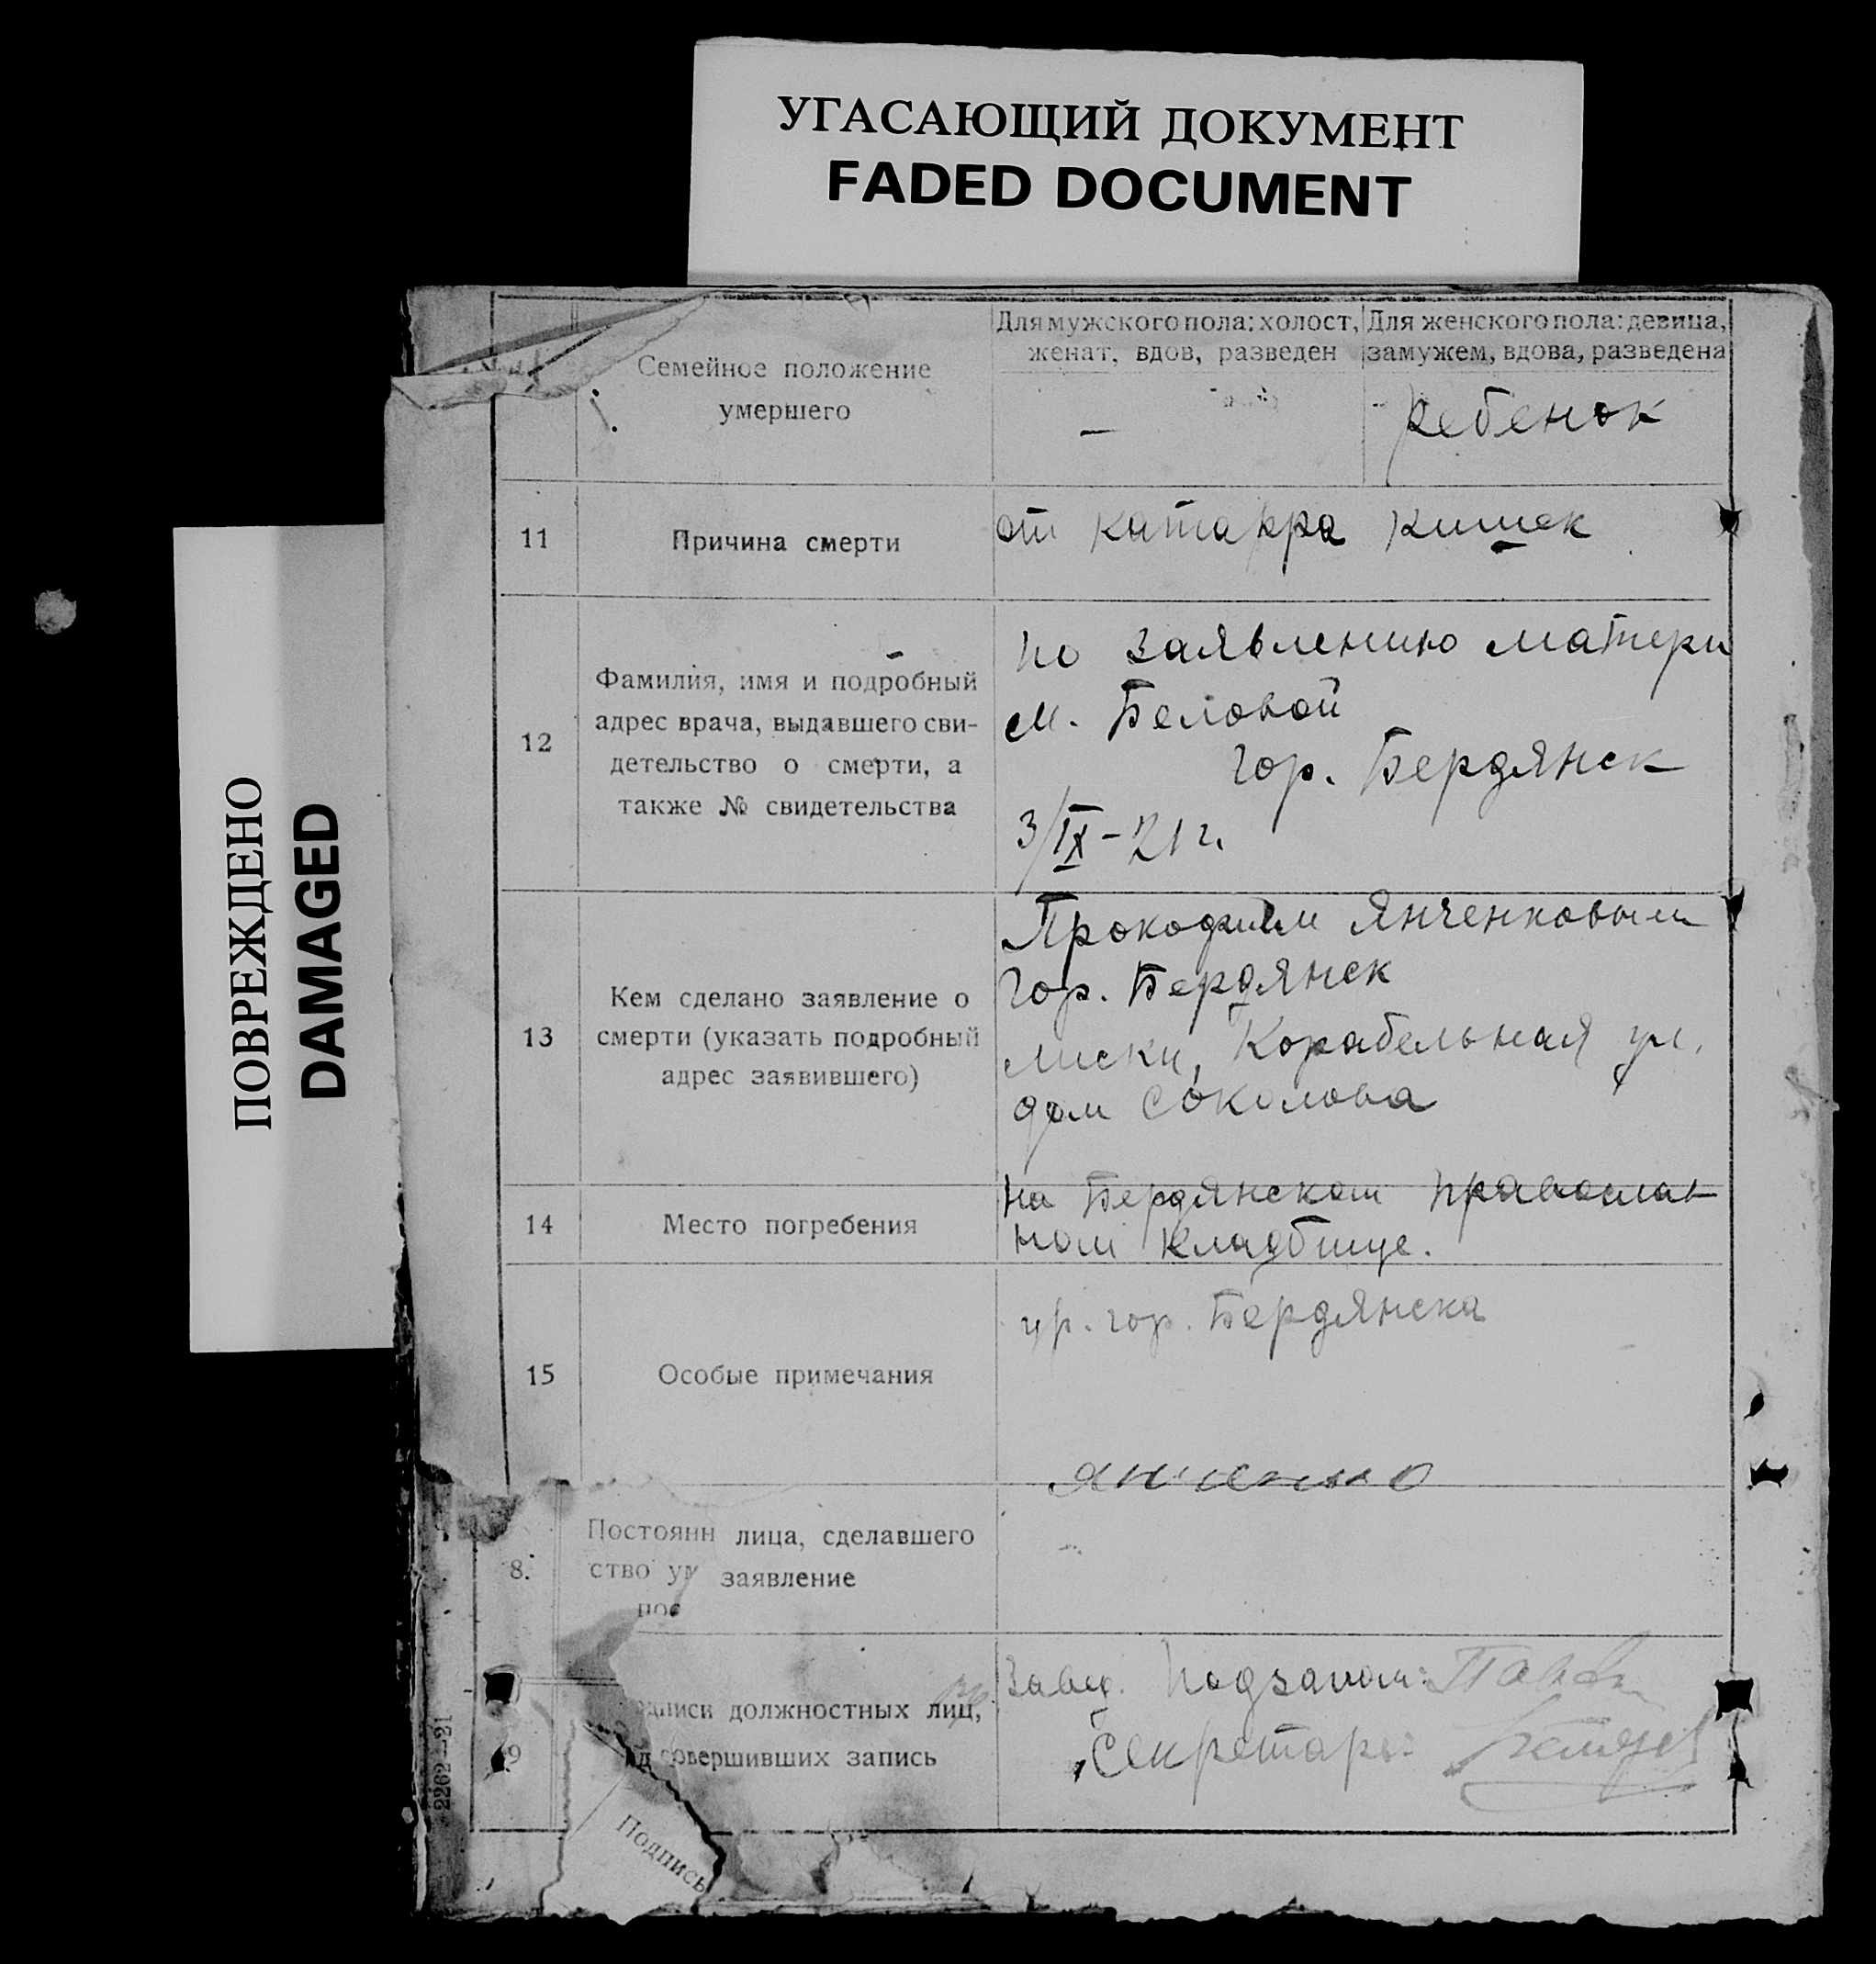 УГАСАЮЩИЙ ДОКУМЕНТ
FADED DOCUMENT
ПОВРЕЖДЕНО
DAMAGED
Семейное положение
умершего
Для мужского пола: холост,
женат, вдов, разведен
—
Для женского пола: девица,
замужем, вдова, разведена
ребенок
11
Причина смерти
от катарра кишек
12
Фамилия, имя и подробный
адрес врача, выдавшего сви-
детельство о смерти, а
также № свидетельства
по заявлению матери
М. Беловой
гор. Бердянск
3/IX-21 г.
13
Кем сделано заявление о
смерти (указать подробный
адрес заявившего)
Прокофием Янченковым
гор. Бердянск
Лиски, Корабельная ул.
дом Соколова
14
Место погребения
на Бердянском православ
ном кладбище.
15
Особые примечания
гр. гор. Бердянска
Янченко
8.
Постоянн лица, сделавшего
ство ум заявление
пос
9
дписи должностных лиц,
совершивших запись
Завед. Подзагом:
Секретарь:
Подпись
2262—21